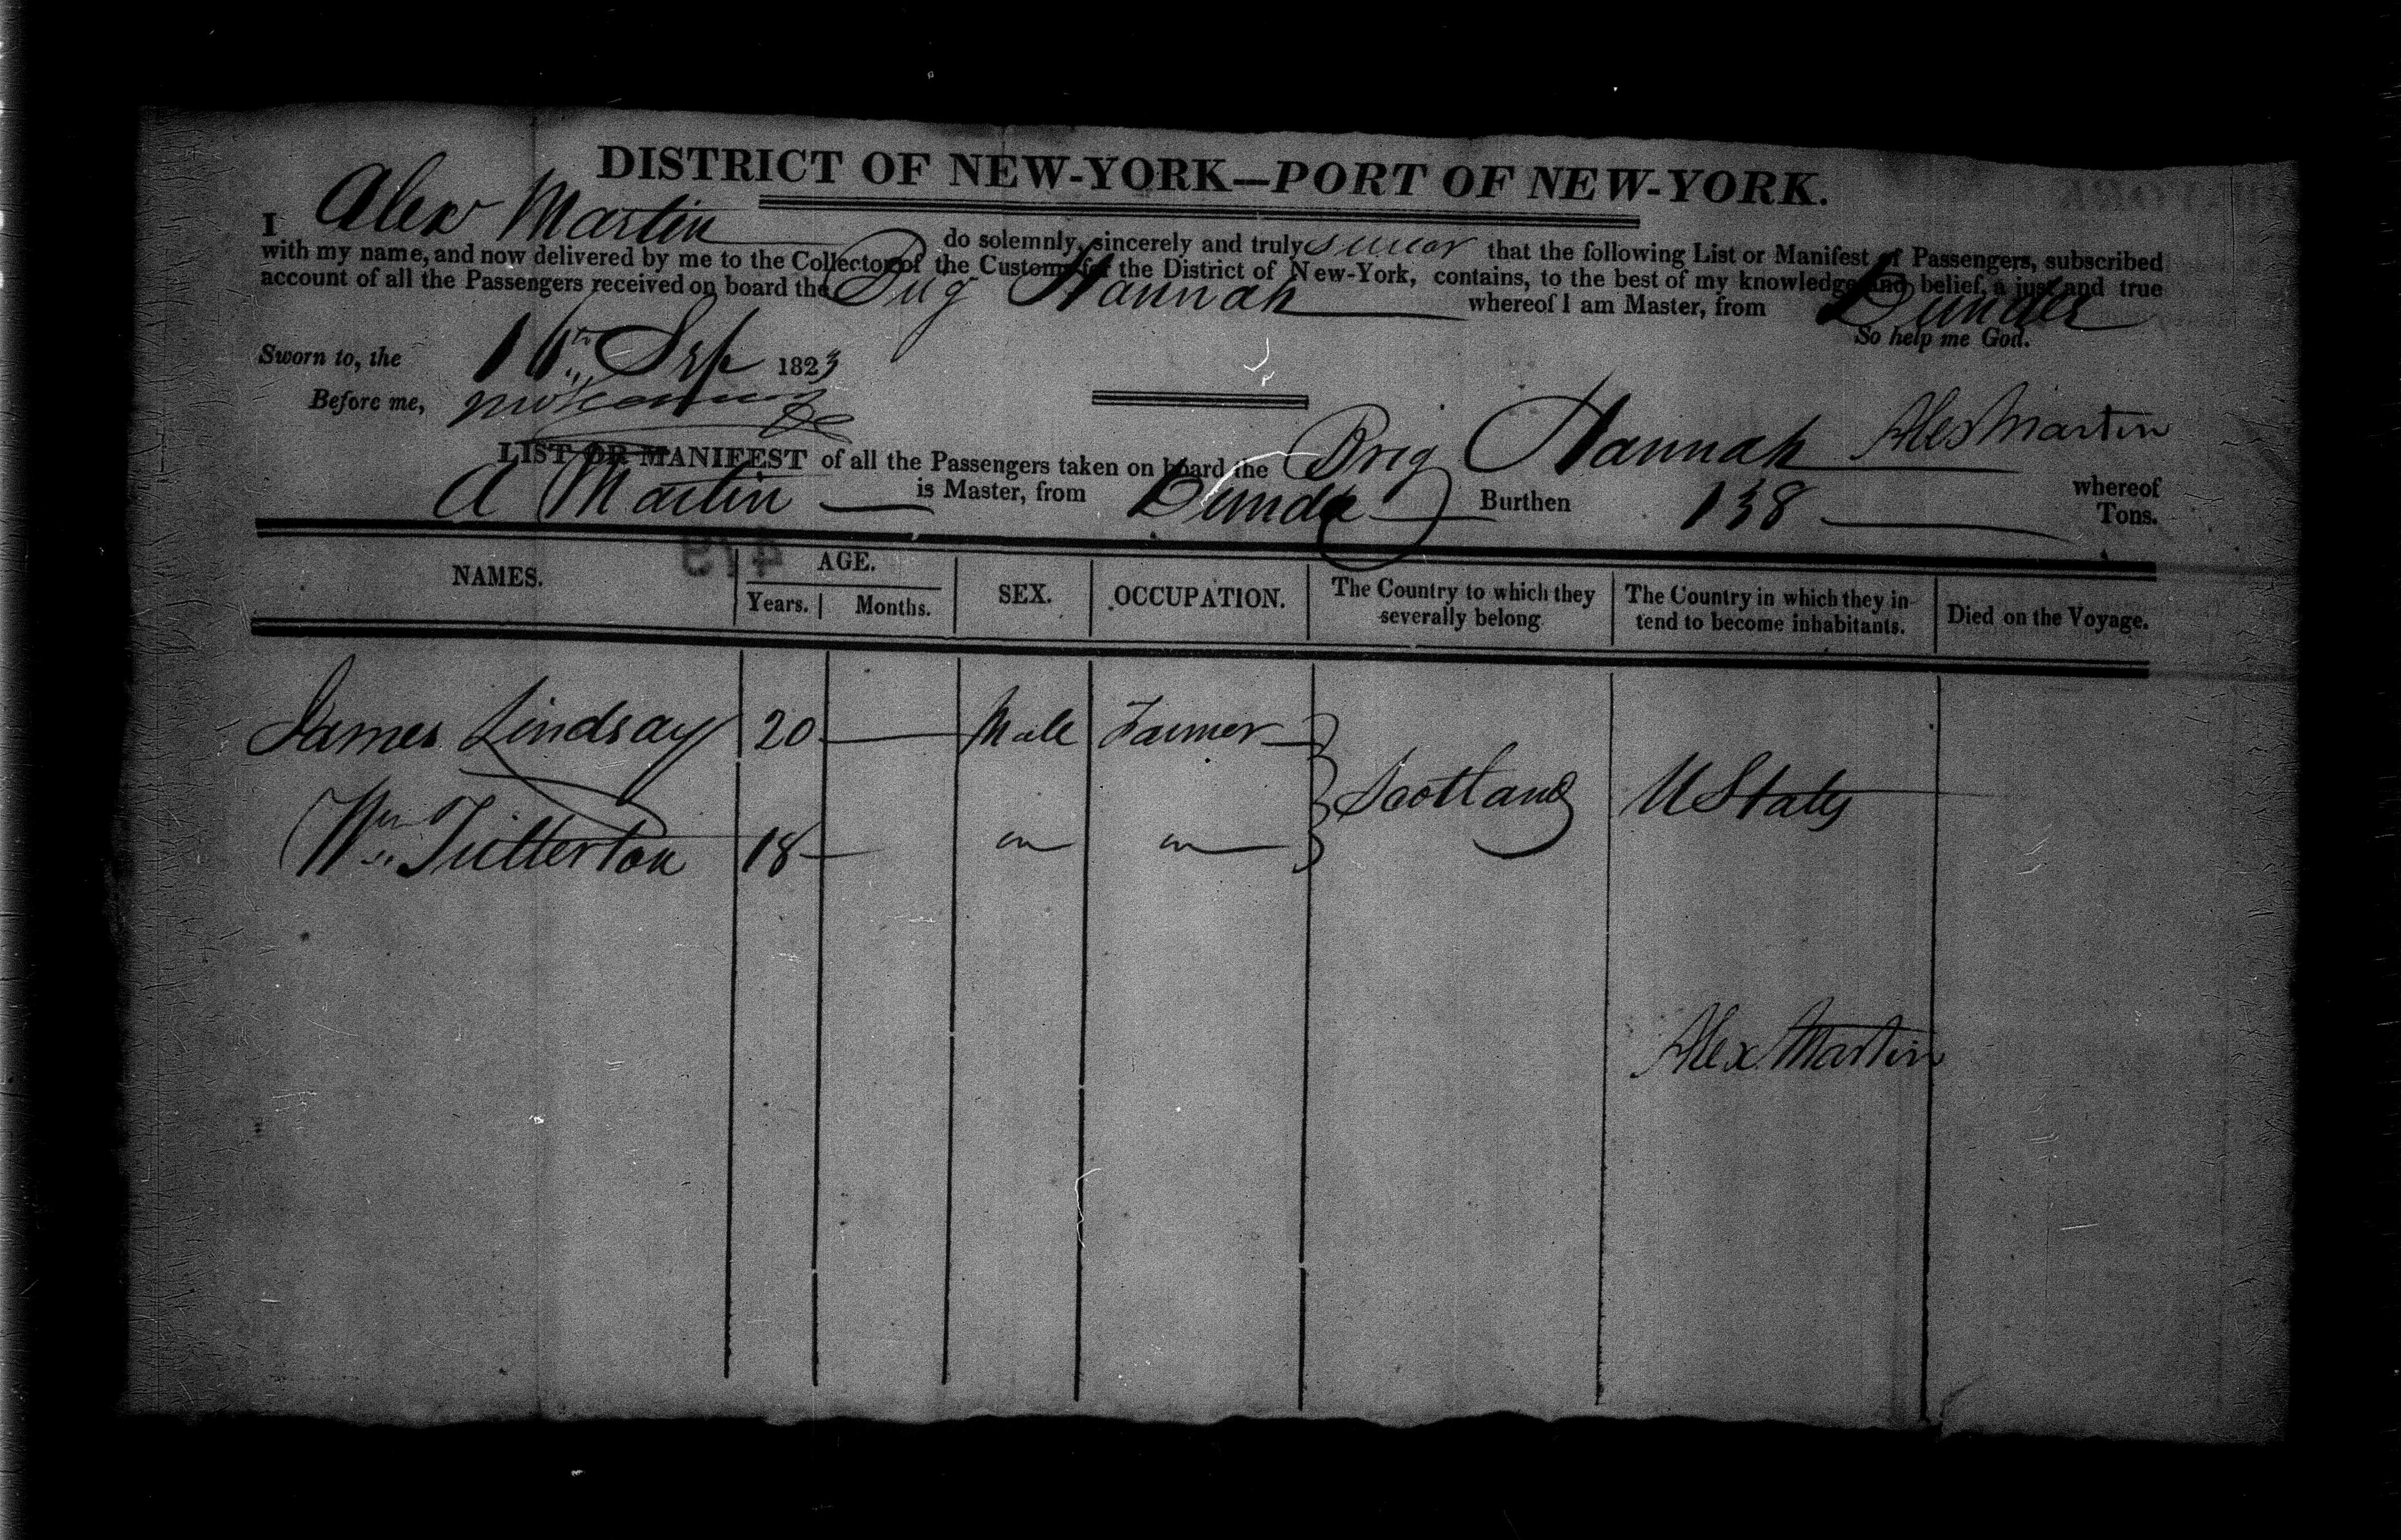 DISTRICT OF NEW-YORK—PORT OF NEW-YORK.
I Alex Martin do solemnly, sincerely and truly swear that the following List or Manifest of Passengers, subscribed
with my name, and now delivered by me to the Collector of the Customs for the District of New-York, contains, to the best of my knowledge and belief, a just and true
account of all the Passengers received on board the Brig Hannah whereof I am Master, from Dundee
So help me God.
Sworn to, the 16th Sep 1823
Before me,
Alex Martin
LIST OR MANIFEST of all the Passengers taken on board the Brig Hannah whereof
A Martin is Master, from Dundee Burthen 138 Tons.
NAMES. AGE. SEX. OCCUPATION. The Country to which they severally belong The Country in which they intend to become inhabitants. Died on the Voyage.
Years. Months.
James Lindsay 20 — Male Farmer
Scotland U States
Wm 18 —
Alex Martin